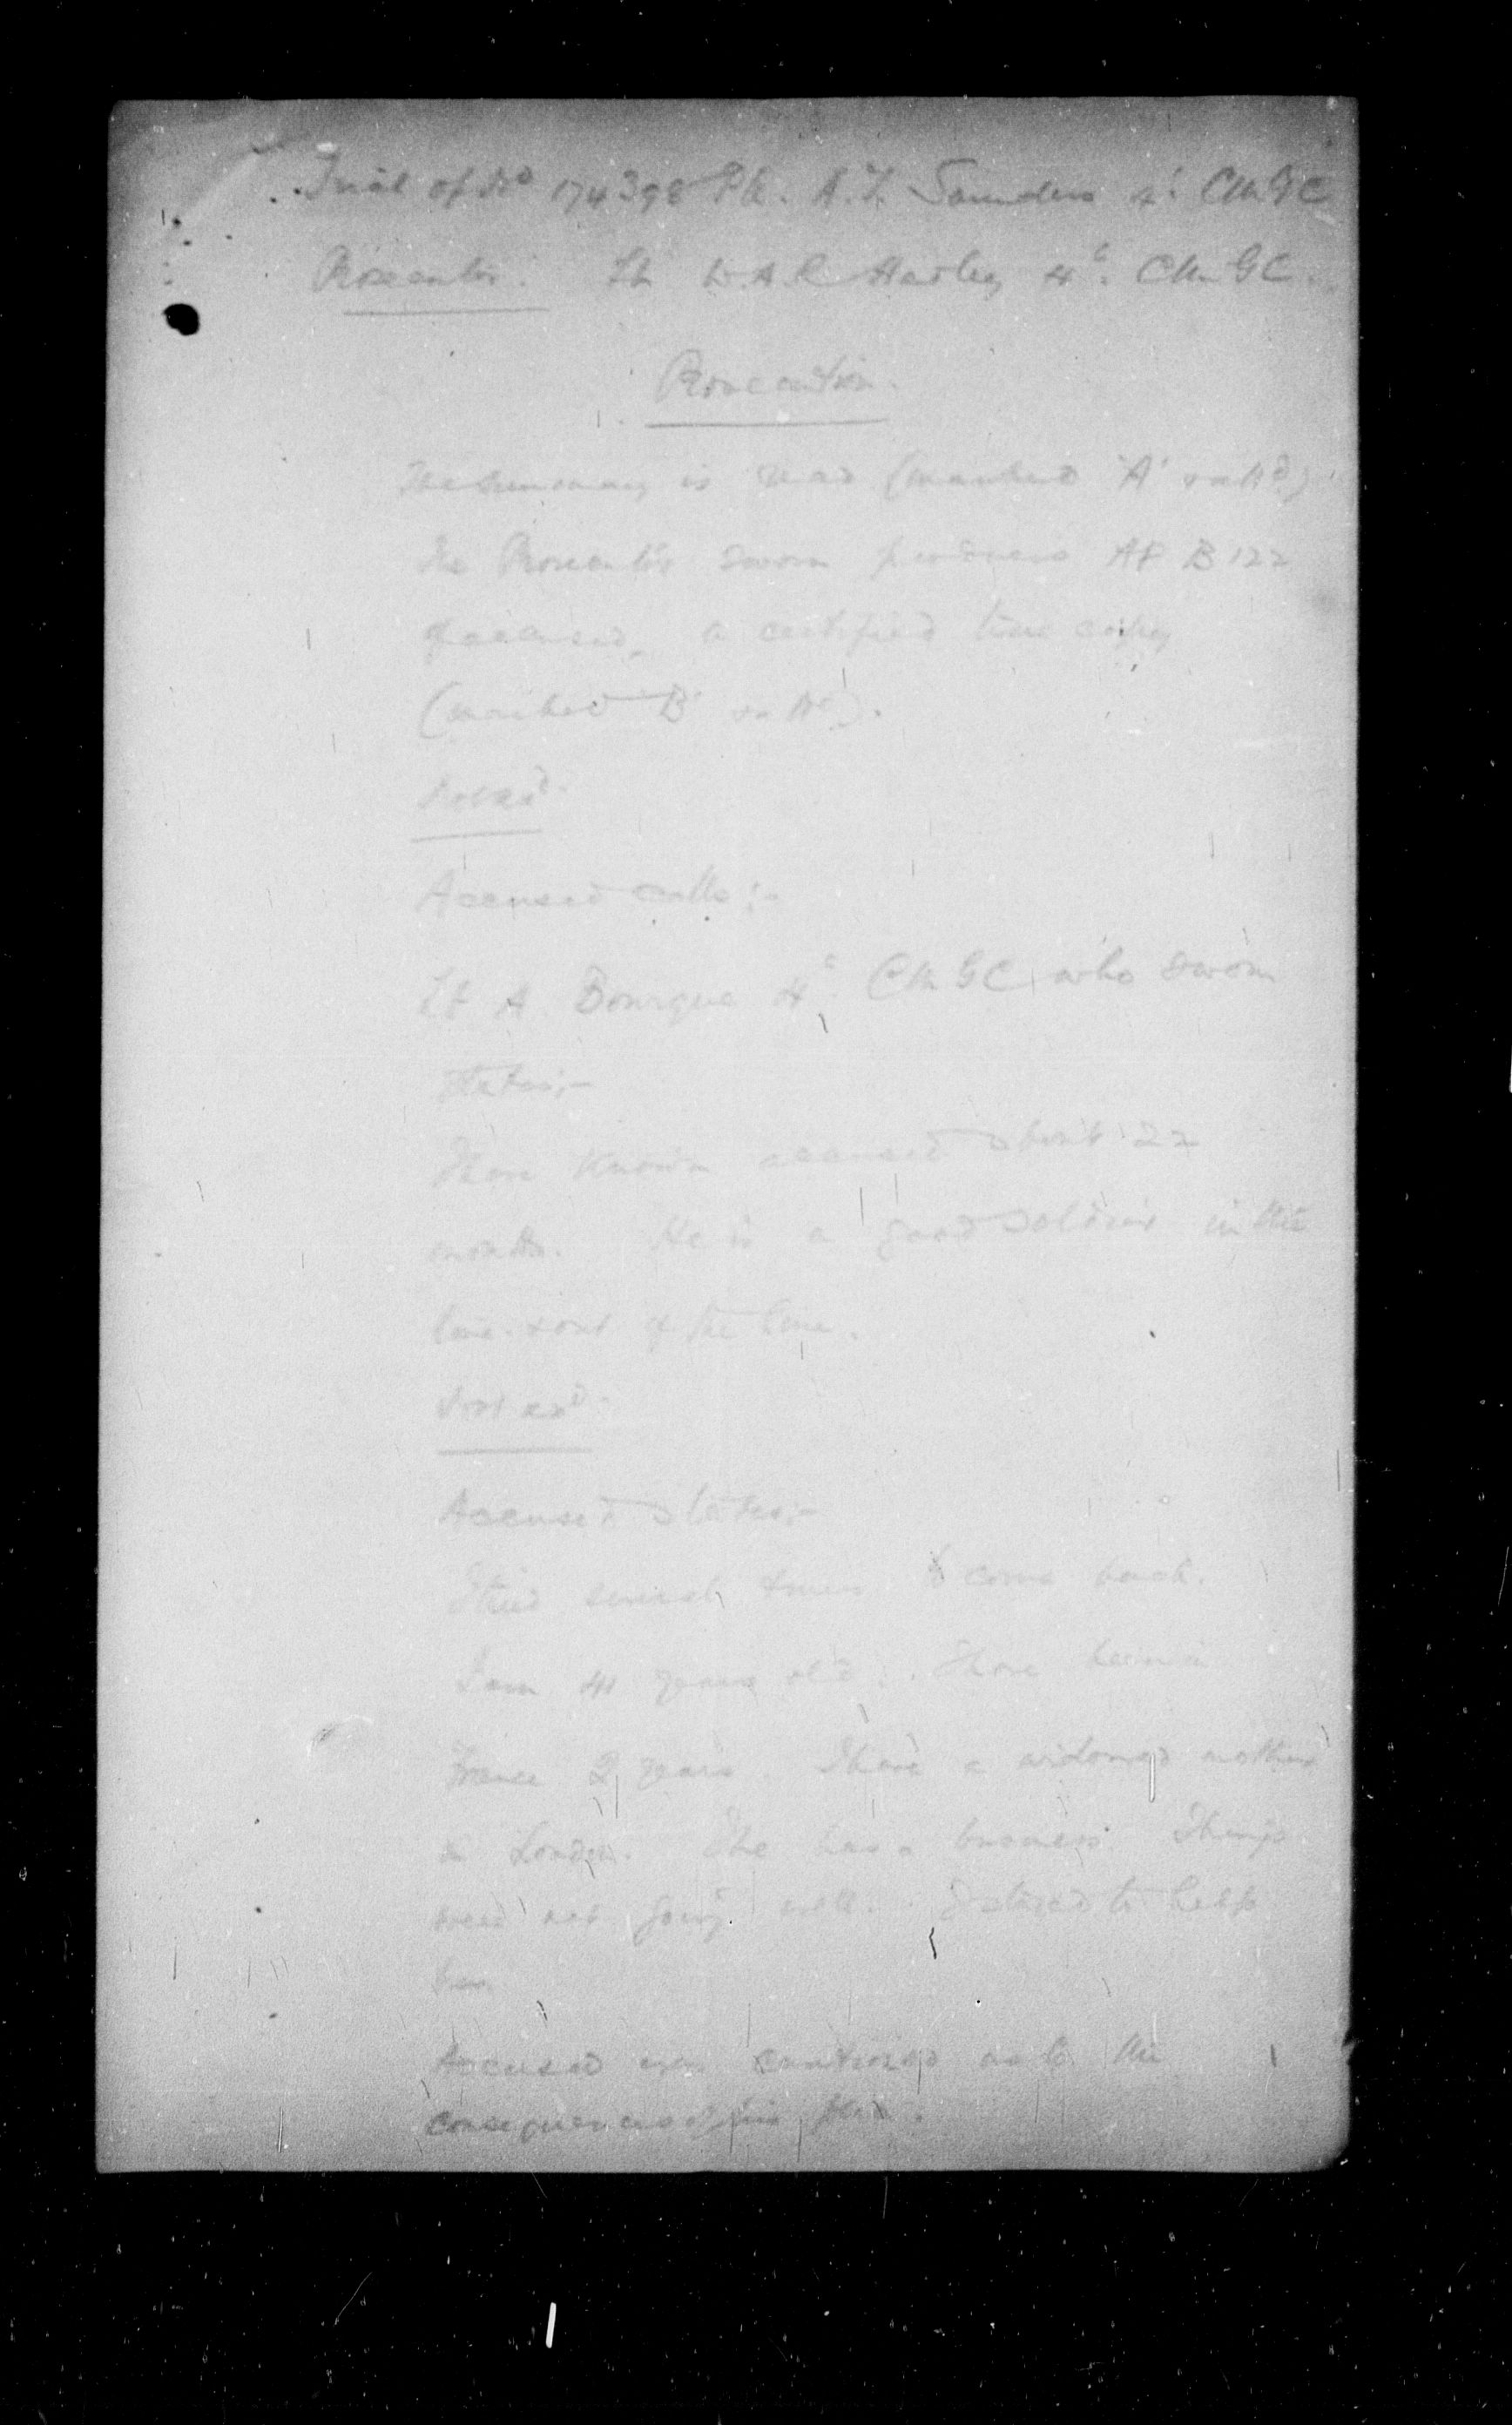 Trial of No 174398 Pte. A. F. Saunders 4c. CMGC
Prosecutor. Lt W.A.R Hartley 4c. CMGC.
Prosecution.
The Summary is read (marked 'A' & att'd)
The Prosecutor sworn produces AF B 122
of accused, a certified true copy
(marked 'B' & att'd).
Not xxd.
Accused calls:-
Lt A Bourque 4c. CMGC who sworn
states:-
I have known accused about 22
months. He is a good soldier in the
line & out of the line.
Not xxd.
Accused states:-
I tried several times to come back.
I am 41 years old. I have been in
France 2 years. I have a widowed mother
in London. She has a business. Things
were not going well. I stayed to help
her.
Accused was cautioned as to the
consequences of his plea.